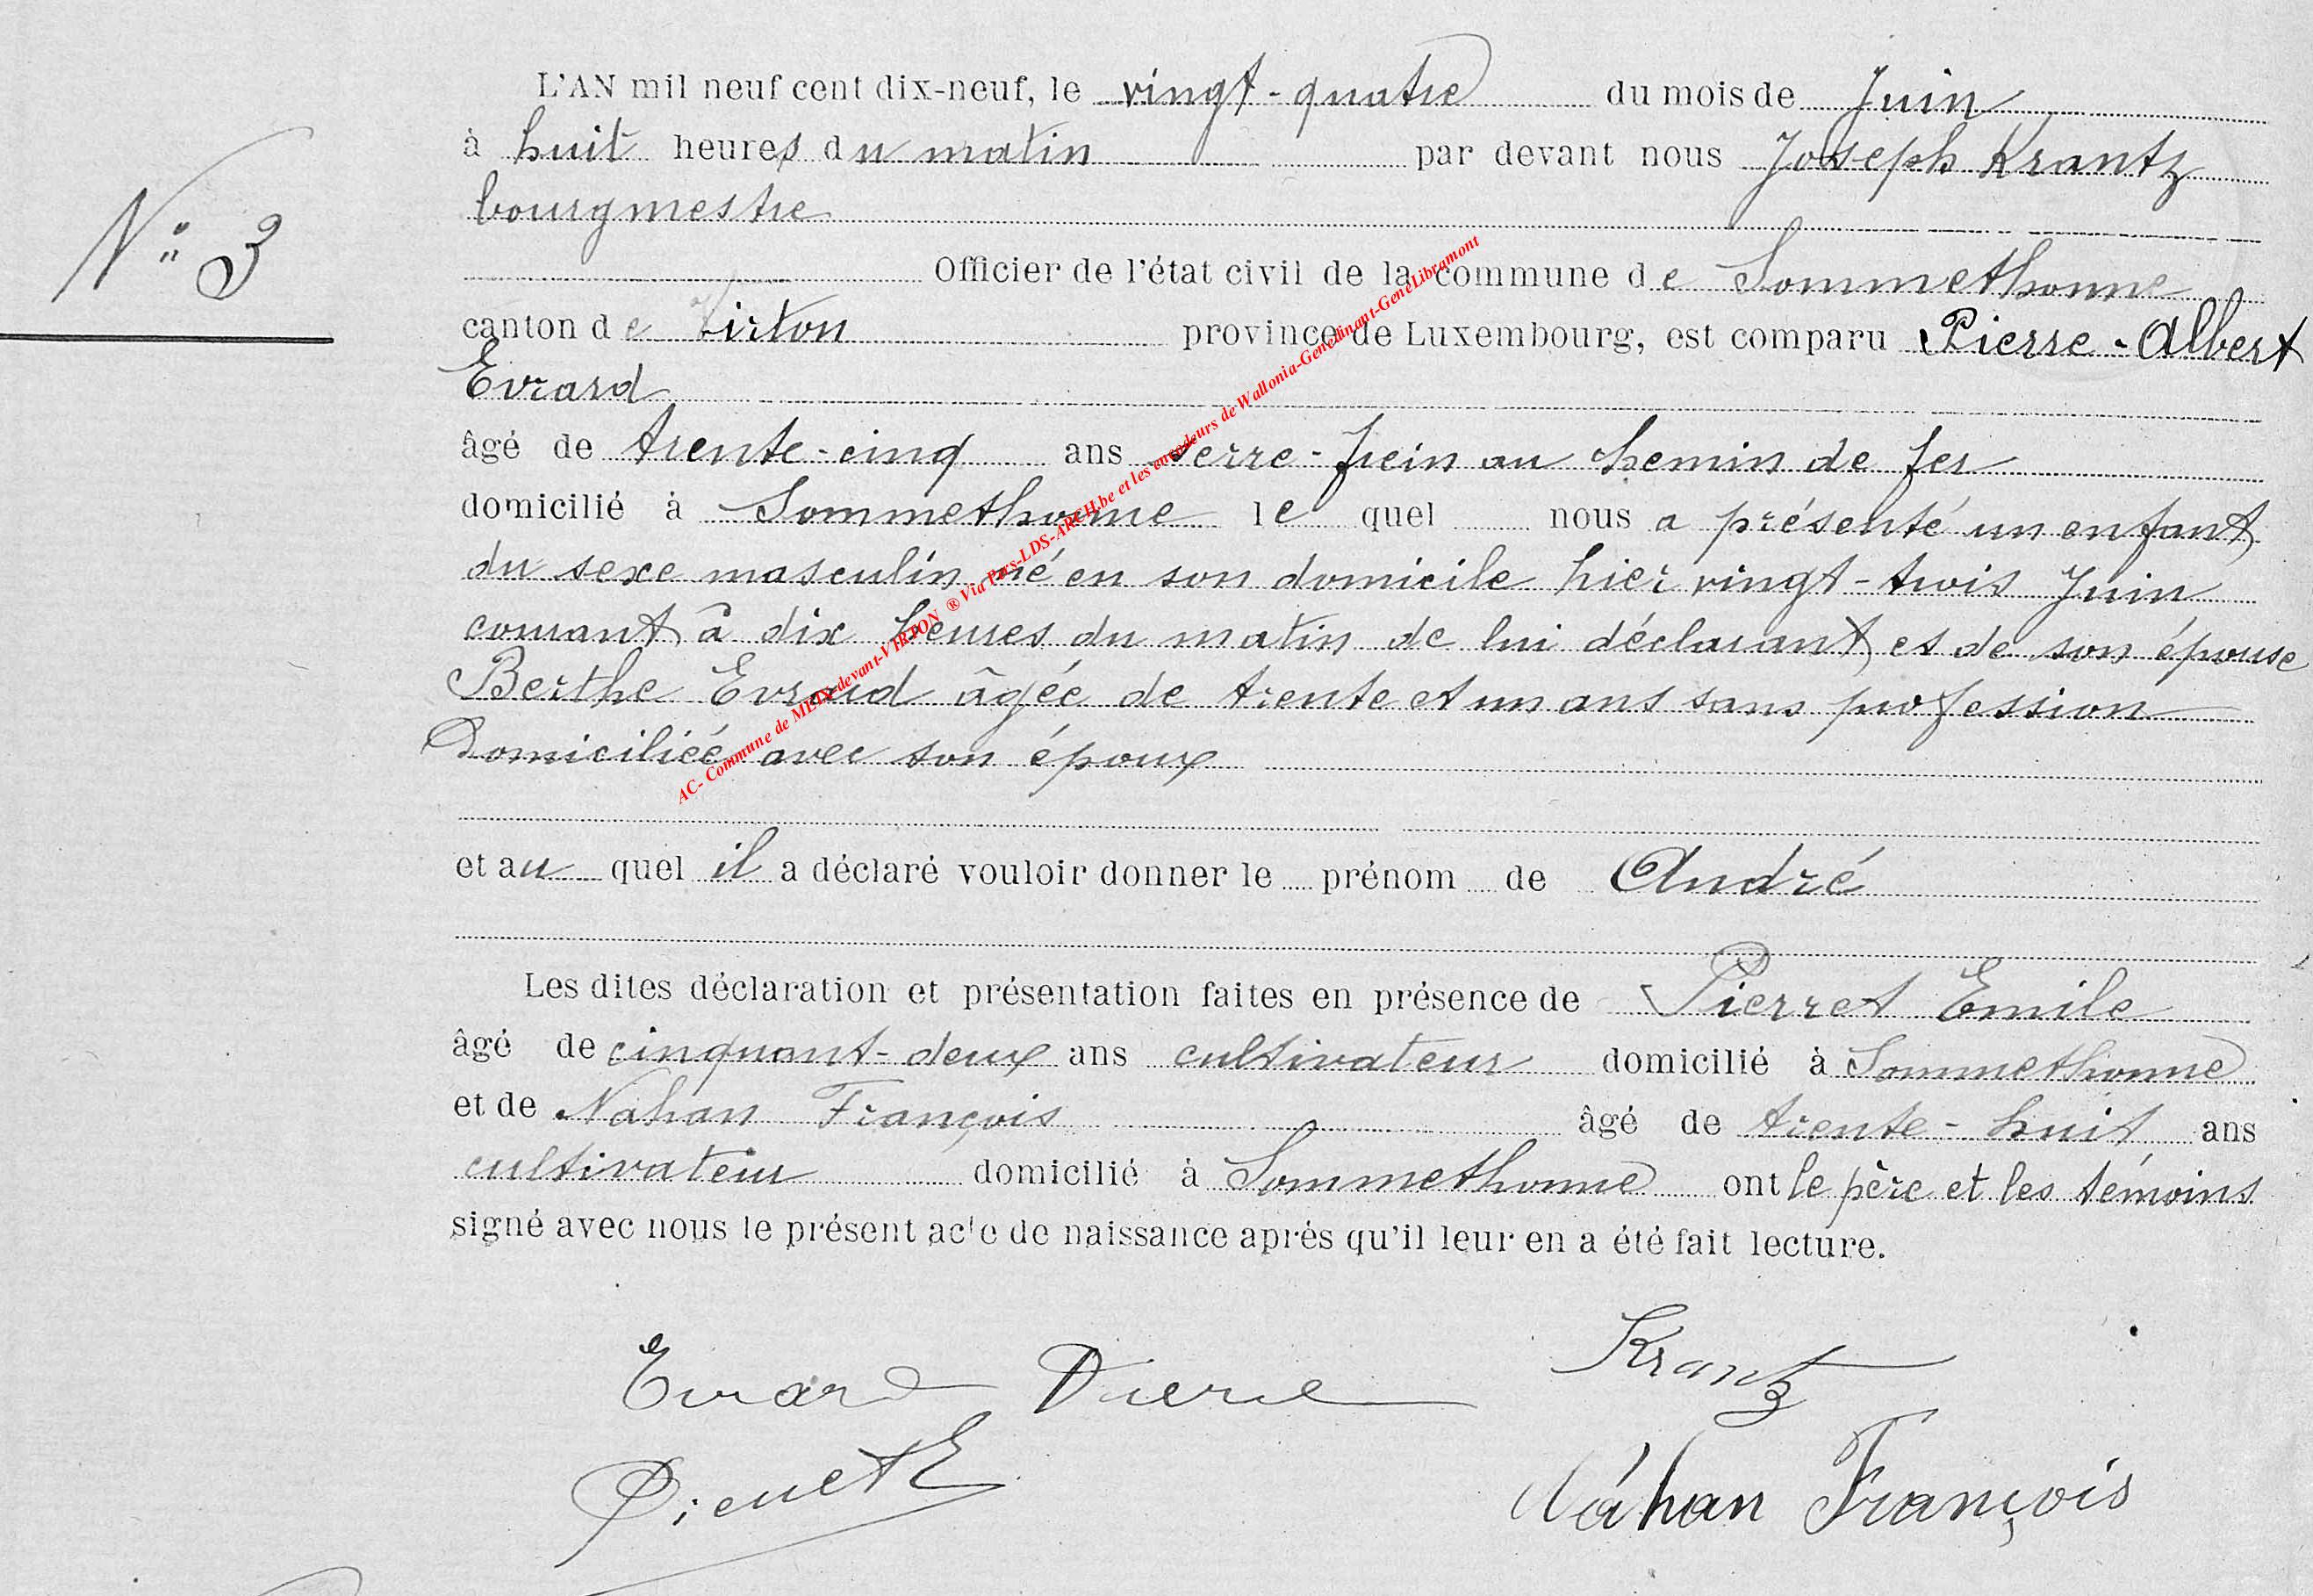 L'AN mil neuf cent dix-neuf, le vingt-quatre du mois de Juin
à huit heures du matin par devant nous Joseph Krantz
bourgmestre
N° 3
Officier de l'état civil de la commune de Sommethonne
canton de Virton province de Luxembourg, est comparu Pierre-Albert
Evrard
âgé de trente-cinq ans serre-frein au chemin de fer
domicilié à Sommethonne lequel nous a présenté un enfant
du sexe masculin né en son domicile hier vingt-trois Juin
courant à dix heures du matin de lui déclarant et de son épouse
Berthe Evrard âgée de trente et un ans sans profession
Domiciliée avec son époux
et au quel il a déclaré vouloir donner le prénom de André
Les dites déclaration et présentation faites en présence de Pierret Emile
âgé de cinquant-deux ans cultivateur domicilié à Sommethonne
et de Nahan François âgé de trente-huit ans
cultivateur domicilié à Sommethonne ont le père et les témoins
signé avec nous le présent acte de naissance après qu'il leur en a été fait lecture.
Krantz
Evrard Pierre
Pierret E
Nahan François
AC- Commune de MEIX-devant-VIRTON ® Via Pars-LDS-ARCH.be et les encodeurs de Wallonia-Genedinant-GeneLibramont